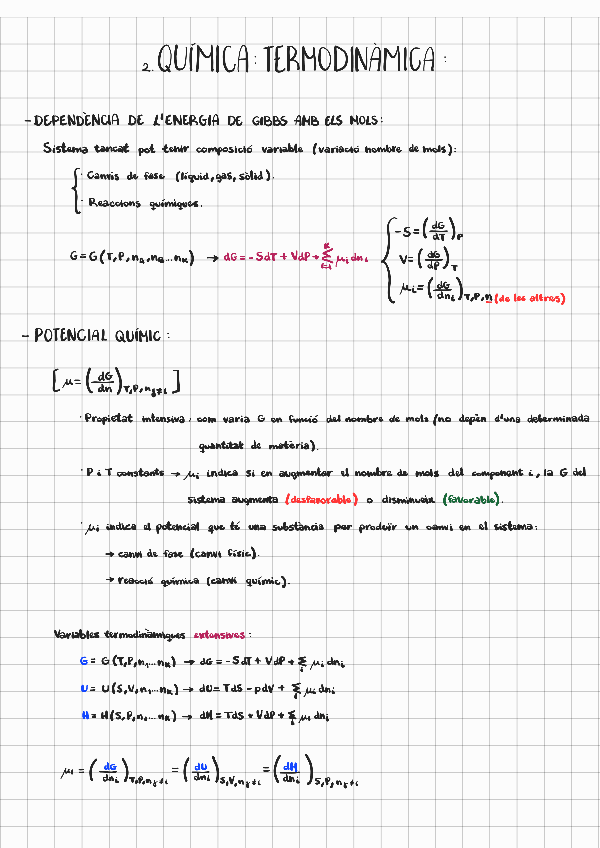 2. QUÍMICA: TERMODINÀMICA:
- DEPENDÈNCIA DE L'ENERGIA DE GIBBS AMB ELS MOLS:
Sistema tancat pot tenir composició variable (variació nombre de mols):
· Canvis de fase (líquid, gas, sòlid).
· Reaccions químiques.
G = G (T, P, nA, nB ... nK) → dG = - SdT + VdP + K∑i=1 μi dni
-S = (dG/dT)P
V = (dG/dP)T
μi = (dG/dni)T,P,n (de les altres)
- POTENCIAL QUÍMIC:
[μ = (dG/dn)T,P,nj≠i]
· Propietat intensiva: com varia G en funció del nombre de mols (no depèn d'una determinada
quantitat de matèria).
· P i T constants → μi indica si en augmentar el nombre de mols del component i, la G del
sistema augmenta (desfavorable) o disminueix (favorable).
· μi indica el potencial que té una substància per produïr un canvi en el sistema:
→ canvi de fase (canvi físic).
→ reacció química (canvi químic).
Variables termodinàmiques extensives:
G = G (T, P, n1 ... nK) → dG = - SdT + VdP + ∑i μi dni
U = U (S, V, n1 ... nK) → dU = TdS - pdV + ∑i μi dni
H = H (S, P, n1 ... nK) → dH = TdS + VdP + ∑i μi dni
μi = (dG/dni)T,P,nj≠i = (dU/dni)S,V,nj≠i = (dH/dni)S,P,nj≠i